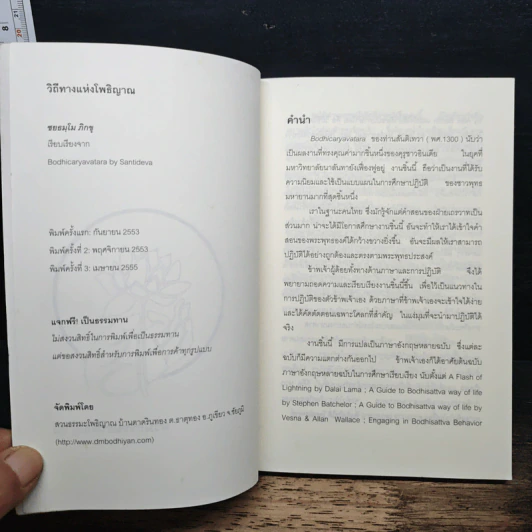 วิถีทางแห่งโพธิญาณ
ชยธมฺโม ภิกขุ
เรียบเรียงจาก
Bodhicaryavatara by Santideva
พิมพ์ครั้งแรก: กันยายน 2553
พิมพ์ครั้งที่ 2: พฤศจิกายน 2553
พิมพ์ครั้งที่ 3: เมษายน 2555
แจกฟรี! เป็นธรรมทาน
ไม่สงวนสิทธิ์ในการพิมพ์เพื่อเป็นธรรมทาน
แต่ขอสงวนสิทธิ์สำหรับการพิมพ์เพื่อการค้าทุกรูปแบบ
จัดพิมพ์โดย
สวนธรรมะโพธิญาณ บ้านตาดรินทอง ต.ธาตุทอง อ.ภูเขียว จ.ชัยภูมิ
(http://www.dmbodhiyan.com)
คำนำ
Bodhicaryavatara ของท่านสันติเทวา ( พศ.1300 ) นับว่า
เป็นผลงานที่ทรงคุณค่ามากชิ้นหนึ่งของคุรุชาวอินเดีย ในยุคที่
มหาวิทยาลัยนาลันทายังเฟื่องฟูอยู่ งานชิ้นนี้ ถือว่าเป็นงานที่ได้รับ
ความนิยมและใช้เป็นแบบแผนในการศึกษาปฏิบัติ ของชาวพุทธ
มหายานมากที่สุดชิ้นหนึ่ง
เราในฐานะคนไทย ซึ่งมักรู้จักแต่คำสอนของฝ่ายเถรวาทเป็น
ส่วนมาก น่าจะได้มีโอกาสศึกษางานชิ้นนี้ อันจะทำให้เราได้เข้าใจคำ
สอนของพระพุทธองค์ได้กว้างขวางยิ่งขึ้น อันจะมีผลให้เราสามารถ
ปฏิบัติได้อย่างถูกต้องและตรงตามพระพุทธประสงค์
ข้าพเจ้าผู้ด้อยทั้งทางด้านภาษาและการปฏิบัติ จึงได้
พยายามถอดความและเรียบเรียงงานชิ้นนี้ขึ้น เพื่อไว้เป็นแนวทางใน
การปฏิบัติของตัวข้าพเจ้าเอง ด้วยภาษาที่ข้าพเจ้าเองจะเข้าใจได้ง่าย
และได้คัดตัดตอนเฉพาะโศลกที่สำคัญ ในแง่มุมที่จะนำมาปฏิบัติได้
จริง
งานชิ้นนี้ มีการแปลเป็นภาษาอังกฤษหลายฉบับ ซึ่งแต่ละ
ฉบับก็มีความแตกต่างกันออกไป ข้าพเจ้าเองก็ได้อาศัยต้นฉบับ
ภาษาอังกฤษหลายฉบับในการศึกษาเรียบเรียง นับตั้งแต่ A Flash of
Lightning by Dalai Lama ; A Guide to Bodhisattva way of life
by Stephen Batchelor ; A Guide to Bodhisattva way of life by
Vesna & Allan Wallace ; Engaging in Bodhisattva Behavior